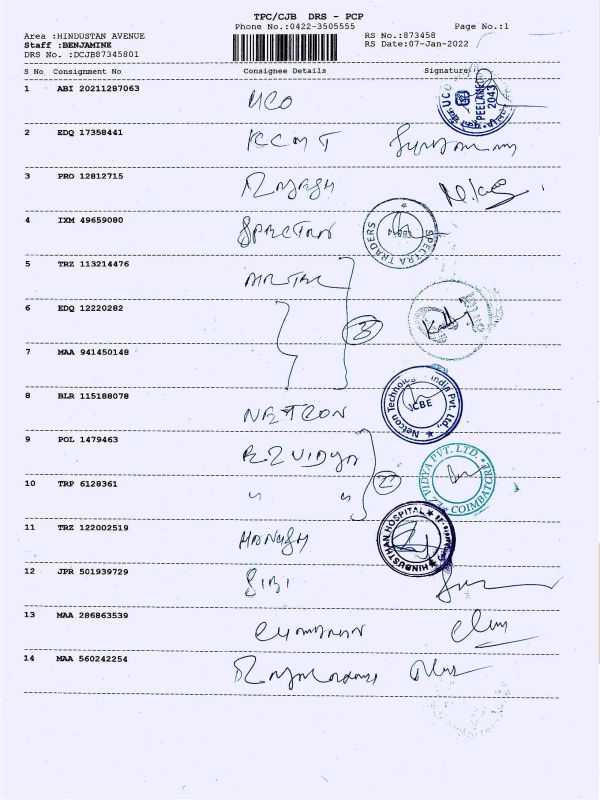 TPC/CJB DRS - PCP
Phone No.:0422-3505555 Page No.:1
Area :HINDUSTAN AVENUE RS No.:873458
Staff :BENJAMINE RS Date:07-Jan-2022
DRS No. :DCJB87345801
S No Consignment No Consignee Details Signature
1 ABI 20211287063 UCO
PEELAMEDU
2043
2 EDQ 17358441 KCMT
3 PRO 12812715 Rajesh
4 IXM 49659080 SPECTRA
SPECTRA TRADERS
5 TRZ 113214476 AIRTEL
6 EDQ 12220282
3
7 MAA 941450148
8 BLR 115188078 NETCON
Netcon Technologies India Pvt. Ltd.,
CBE
9 POL 1479463 EZ VIDYA
EZ VIDYA PVT. LTD. COIMBATORE
10 TRP 6128361 " "
2
11 TRZ 122002519
HINDUSTHAN HOSPITAL
12 JPR 501939729 SIBI
13 MAA 286863539
14 MAA 560242254